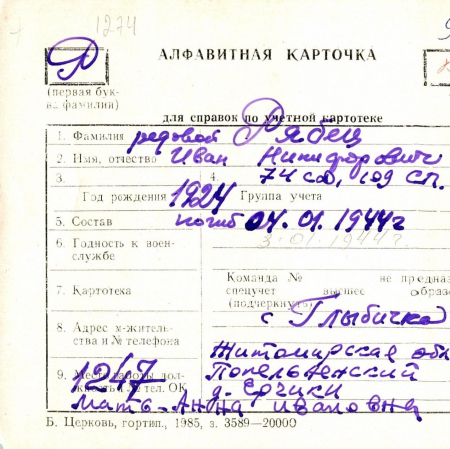 1274
Р
АЛФАВИТНАЯ КАРТОЧКА
(первая бук-
ва фамилии)
для справок по учетной картотеке
1. Фамилия рядовой Рябец
2. Имя, отчество Иван Никифорович
3. 4. 74 сд, 109 сп.
Год рождения 1924 Группа учета
5. Состав погиб 04.01.1944г
6. Годность к воен- 3.01.1944г.
службе
Команда № не предназ
7. Картотека спецучет высшее образ
(подчеркнуть)
с Глыбичка
8. Адрес м-житель-
ства и № телефона
Житомирская обл
9. Место работы дол- Попельнянский
жность и № тел. ОК д. Ерчики
1247
Мать-Анна Ивановна
Б. Церковь, гортип., 1985, з. 3589—20000